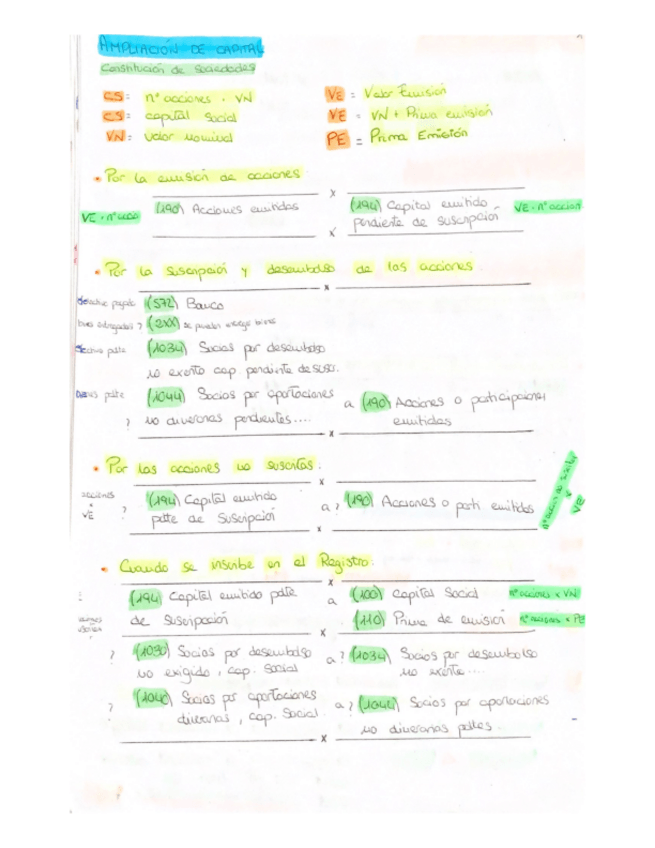 AMPLIACIÓN DE CAPITAL
Constitución de sociedades
CS = nº acciones · VN
VE = Valor Emisión
CS = capital social
VE = VN + Prima emisión
VN = valor nominal
PE = Prima Emisión
• Por la emisión de acciones
x
VE · nº acc
(190) Acciones emitidas
(194) Capital emitido
VE · nº accion
pendiente de suscripción
x
• Por la suscripción y desembolso de las acciones
x
(572) Banco
? (2XX) se pueden entregar bienes
(1034) Socios por desembolso
no exento cap. pendiente de suscr.
(1044) Socios por aportaciones
a (190) Acciones o participaciones
? no dinerarias pendientes....
emitidas
x
• Por las acciones no suscritas:
x
acciones
x
VE
? (194) Capital emitido
a ? (190) Acciones o parti. emitidas
pdte de Suscripción
VE
x
• Cuando se inscribe en el Registro:
x
(194) Capital emitido pdte
a (100) Capital Social
nº acciones x VN
de suscripción
(110) Prima de emisión
nº acciones x PE
x
? (1030) Socios por desembolso
a ? (1034) Socios por desembolso
no exigido, cap. Social
no exento....
? (1040) Socios por aportaciones
a ? (1044) Socios por aportaciones
dinerarias, cap. Social.
no dinerarias pdtes.
x